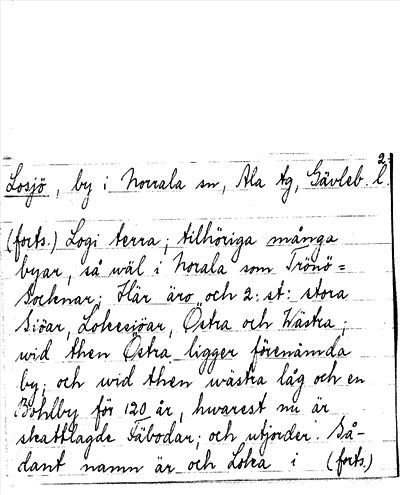 2
Losjö, by i Norrala sn, Ala tg, Gävleb. l.
(forts.) Logi terra; tilhöriga många
byar, så wäl i Norala som Trönö=
Socknar; Här äro och 2: st: stora
Siöar, Lokesiöar, Östra och Wästra;
wid then Östra ligger förenämda
by; och wid then wästra låg och en
Bohlby för 120 år, hwarest nu är
skattlagde Fäbodar; och utjorder. Så-
dant namn är och Loka i (forts.)